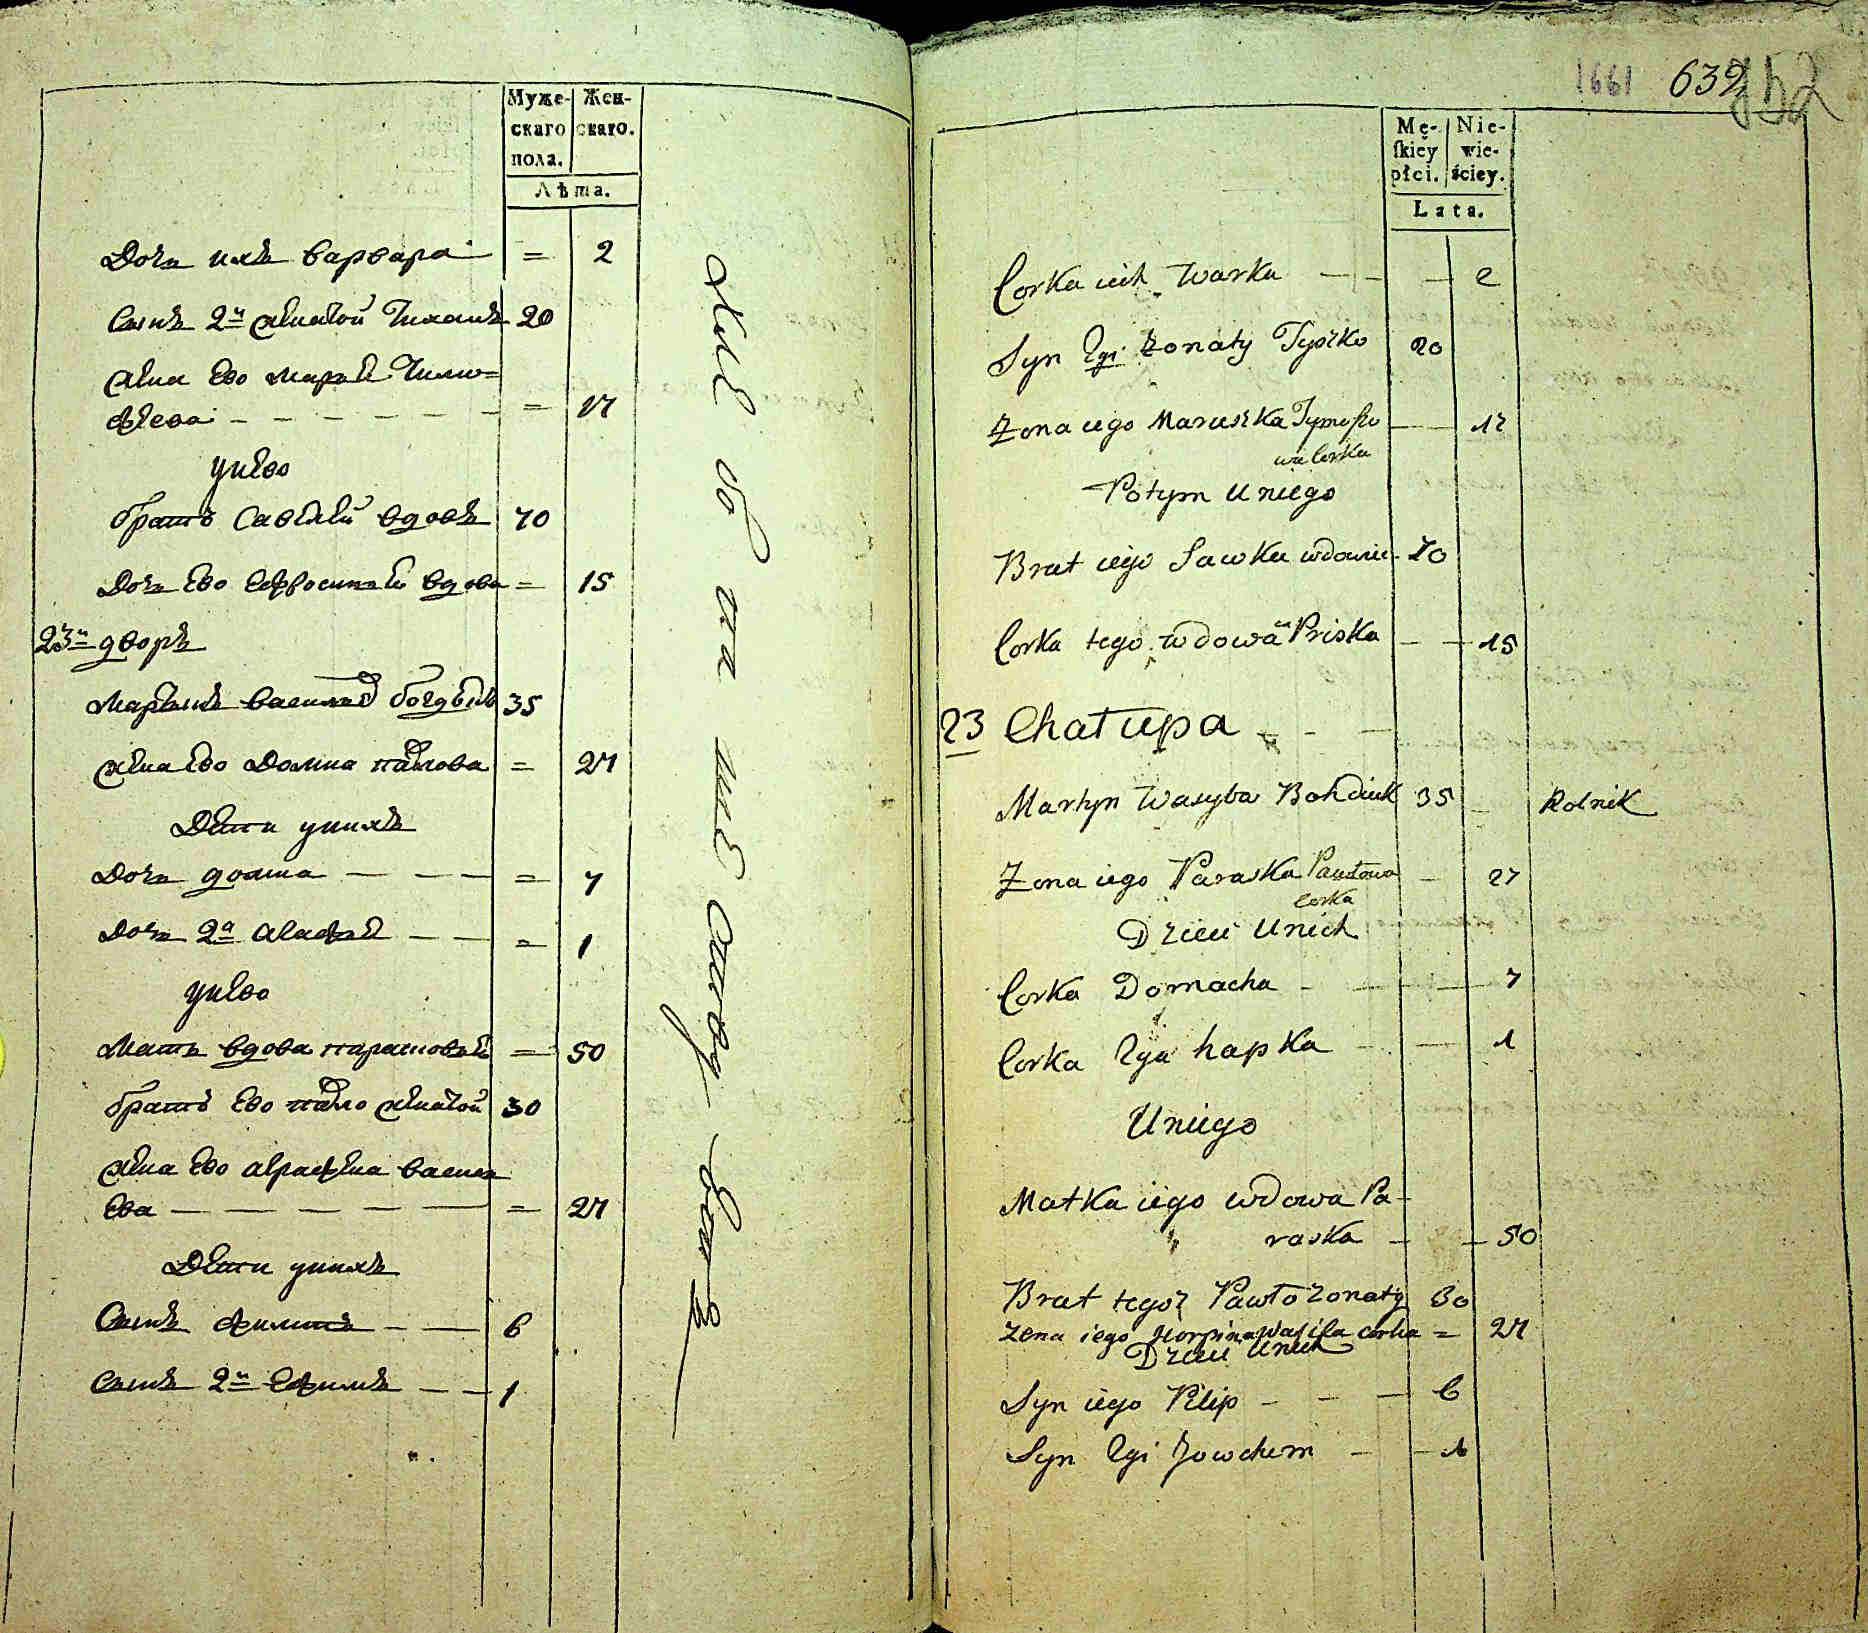 Муже-
скаго
пола.
Жен-
скаго.
Лѣта.
Дочь ихъ варвара = 2
Сынъ 2й женатой Тихонъ 20
жена Ево марья Тимо=
феева — — — = 17
унево
братъ Савелей вдовъ 70
дочь Ево Ефросинья вдова = 15
23й дворъ
мартынъ василев богдюкъ 35
жена Ево домна павлова = 27
Дѣти унихъ
дочь домна — — — = 7
дочь 2я агафья — — = 1
унево
мать вдова парасковья = 50
братъ Ево павло женатой 30
жена Ево аграфена васил
Ева — — — = 27
Дѣти унихъ
Сынъ филипъ — — 6
сынъ 2й Ефимъ — — 1
1661 632
Mę-
skiey
płci.
Nie-
wie-
ściey.
Lata.
Corka ich Warka — — 2
Syn 2gi żonaty Tyszko 20
Zona iego Maruszka Tymoszo
wa Corka — — 17
Potym Uniego
Brat iego Sawka wdowiec 70
Corka tego wdowa Priska — — 15
23 Chałupa — — —
Martyn Wasyba Bohdiuk 35 — Rolnik
Zona iego Paraska Pawłowa
corka — 27
Dzieci Unich
Corka Domacha — — — 7
Corka 2ga hapka — — 1
Uniego
Matka iego wdowa Pa-
raska — — 50
Brat tegoż Pawło żonaty 30
zena iego Horpina Wasila corka = 27
Dzieci Unich
Syn iego Pilip — — — 6
Syn 2gi Jowchem — — 1